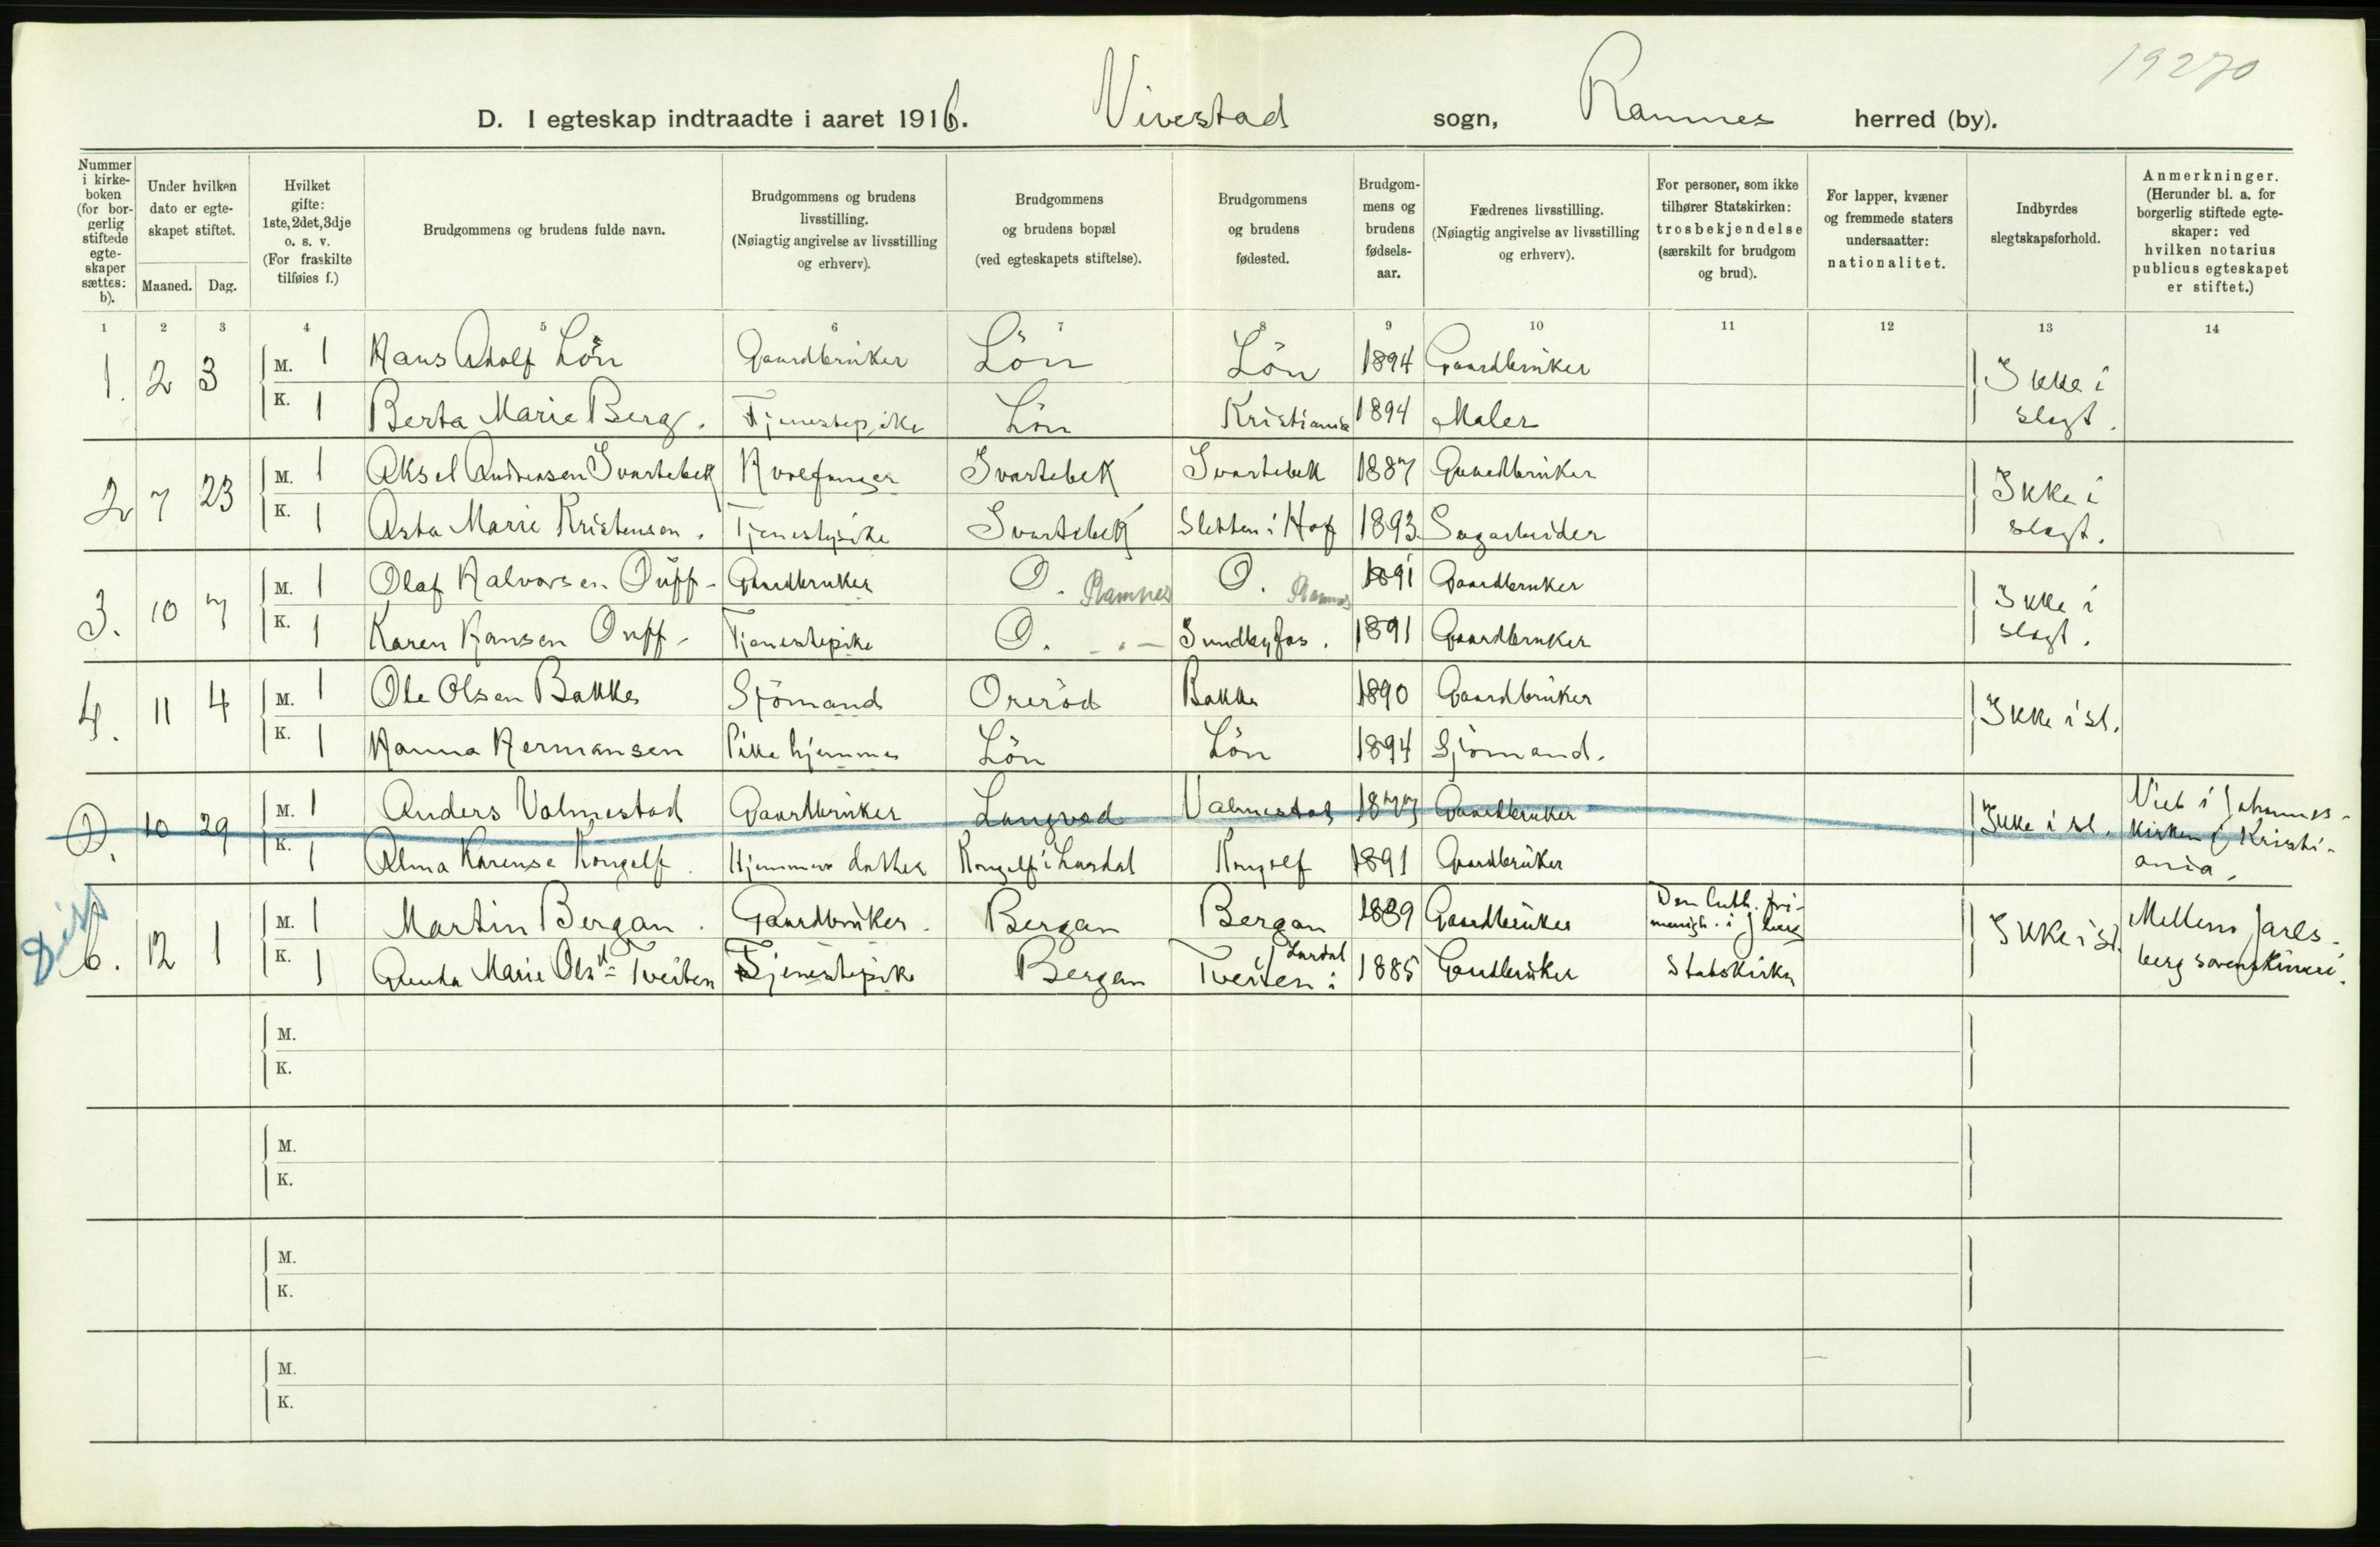 19270
D. I egteskap indtraadte i aaret 1916. Vivestad sogn, Ramnes herred (by).
Nummer i kirkeboken (for borgerlig stiftede egteskaper sættes: b).
Under hvilken dato er egteskapet stiftet.
Maaned. Dag.
Hvilket gifte: 1ste, 2det, 3dje o. s. v. (For fraskilte tilføies f.)
Brudgommens og brudens fulde navn.
Brudgommens og brudens livsstilling. (Nøiagtig angivelse av livsstilling og erhverv).
Brudgommens og brudens bopæl (ved egteskapets stiftelse).
Brudgommens og brudens fødested.
Brudgommens og brudens fødselsaar.
Fædrenes livsstilling. (Nøiagtig angivelse av livsstilling og erhverv).
For personer, som ikke tilhører Statskirken: trosbekjendelse (særskilt for brudgom og brud).
For lapper, kvæner og fremmede staters undersaatter: nationalitet.
Indbyrdes slegtskapsforhold.
Anmerkninger. (Herunder bl. a. for borgerlig stiftede egteskaper: ved hvilken notarius publicus egteskapet er stiftet.)
1 2 3 4 5 6 7 8 9 10 11 12 13 14
1. 2 3 M. 1 Hans Adolf Lön Gaardbruker Lön Lön 1894 Gaardbruker Ikke i slegt.
K. 1 Berta Marie Berg. Tjenestepike Lön Kristiania 1894 Maler
2 7 23 M. 1 Aksel Andreasen Svartebek Hvalfanger Svartebek Svartebek 1887 Gaardbruker Ikke i slegt.
K. 1 Asta Marie Kristensen. Tjenestepike Svartebek Sletten i Hof 1893 Sagarbeider
3. 10 7 M. 1 Olaf Halvorsen Ouff- Gaardbruker O. Ramnes O. Ramnes 1891 Gaardbruker Ikke i slegt.
K. 1 Karen Hansen Ouff- Tjenestepike O. - " - Sundbyfos. 1891 Gaardbruker
4. 11 4 M. 1 Ole Olsen Bakke Sjömand Oreröd Bakke 1890 Gaardbruker Ikke i sl.
K. 1 Hanna Hermansen Pike hjemme Lön Lön 1894 Sjömand.
10 29 M. 1 Anders Valmestad Gaardbruker Langved Valmestad 1877 Gaardbruker Ikke i sl. Viet i Johanneskirken i Kristiania.
K. 1 Alma Karense Kongelf. Hjemmev datter Kongelf i Lardal Kongelf 1891 Gaardbruker
Diss
6. 12 1 M. 1 Martin Bergan. Gaardbruker. Bergan Bergan 1889 Gaardbruker Den luth. frimenigh. i Jberg Ikke i sl. Mellem Jarlsberg sorenskriveri.
K. 1 Gunda Marie Olsdtr Tveiten Tjenestepike Bergan Tveiten i Lardal 1885 Gardbruker Statskirke
M.
K.
M.
K.
M.
K.
M.
K.